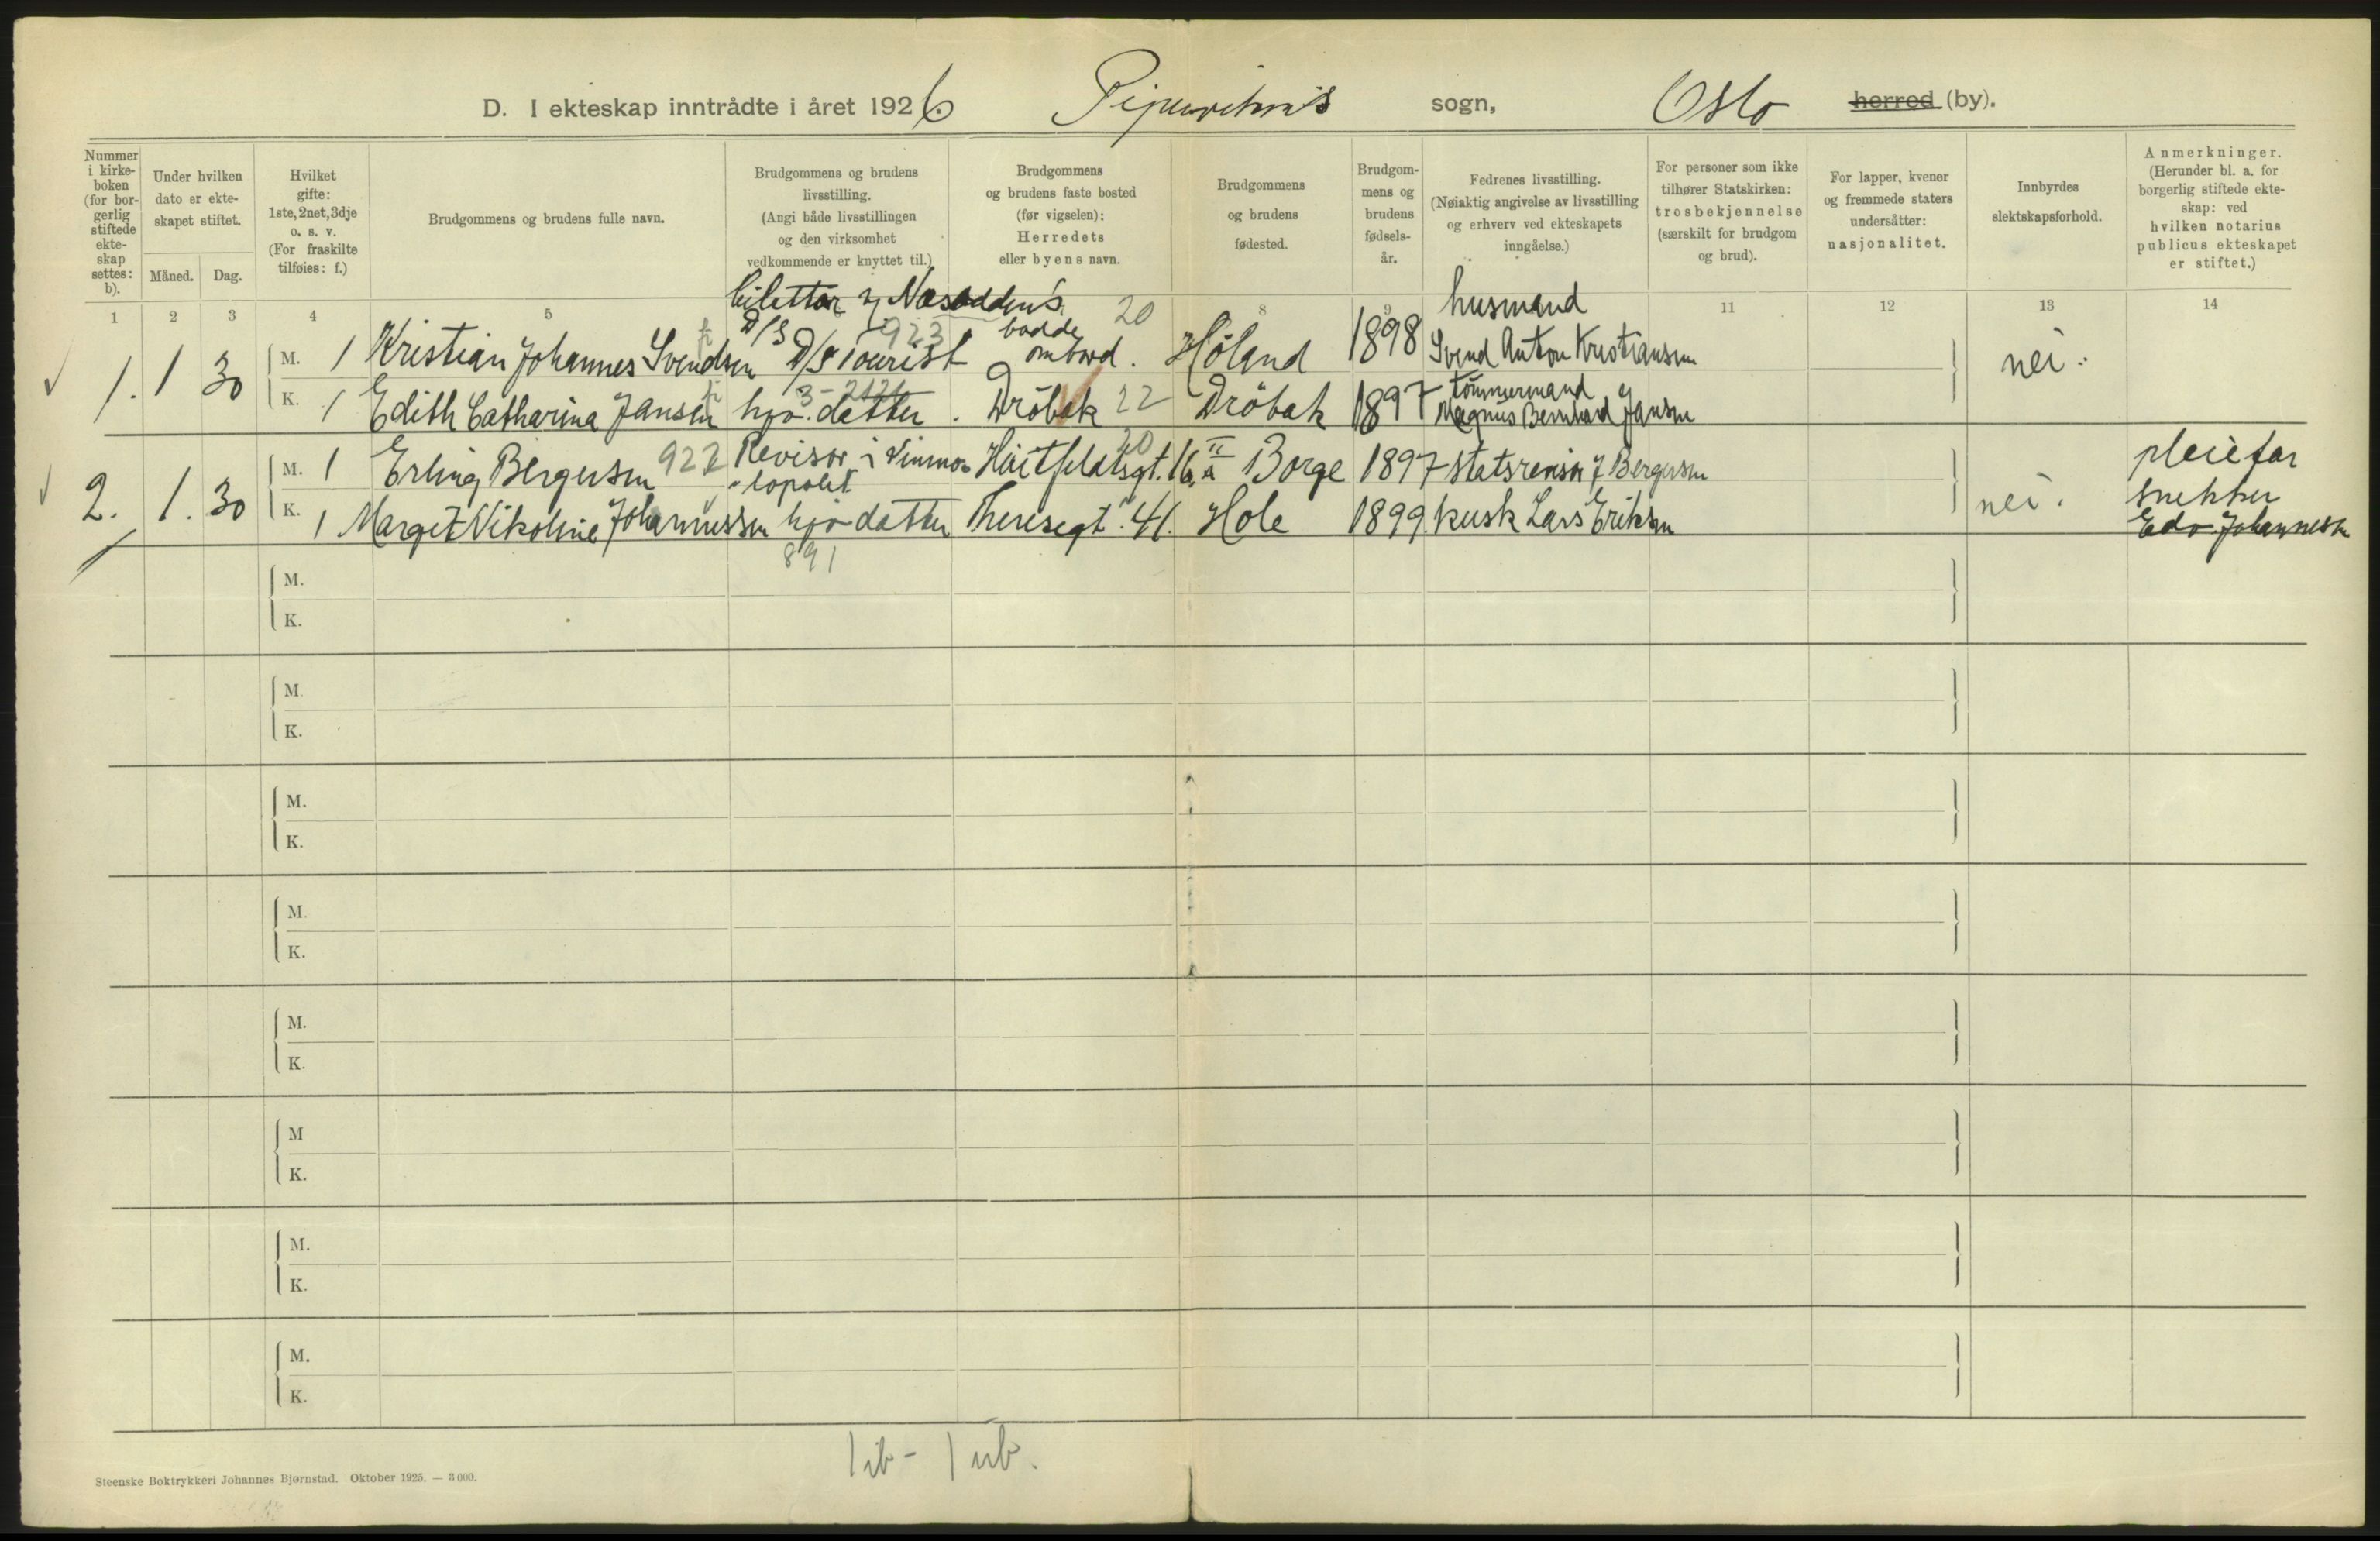 D. I ekteskap inntrådte i året 1926. Pipervikens sogn, Oslo herred (by).
Nummer i kirkeboken (for borgerlig stiftede ekteskap settes: b).
Under hvilken dato er ekteskapet stiftet.
Måned. Dag.
Hvilket gifte: 1ste, 2net, 3dje o. s. v. (For fraskilte tilføies: f.)
Brudgommens og brudens fulle navn.
Brudgommens og brudens livsstilling. (Angi både livsstillingen og den virksomhet vedkommende er knyttet til.)
Brudgommens og brudens faste bosted (før vigselen): Herredets eller byens navn.
Brudgommens og brudens fødested.
Brudgommens og brudens fødselsår.
Fedrenes livsstilling. (Nøiaktig angivelse av livsstilling og erhverv ved ekteskapets inngåelse.)
For personer som ikke tilhører Statskirken: trosbekjennelse (særskilt for brudgom og brud).
For lapper, kvener og fremmede staters undersåtter: nasjonalitet.
Innbyrdes slektskapsforhold.
Anmerkninger. (Herunder bl. a. for borgerlig stiftede ekteskap: ved hvilken notarius publicus ekteskapet er stiftet.)
1 2 3 4 5 8 9 11 12 13 14
billettør Næsoddens husmand
D/S 923 bodde 20
1. 1 30 M. 1 Kristian Johannes Svendsen D/S Tourist ombord. Höland 1898 Svend Anton Kristiansen nei.
3-2121 tömmermand
K. 1 Edith Catharina Jansen hjv. datter. Dröbak 22 Dröbak 1897 Magnus Bernhard Jansen
2. 1. 30 M. 1 Erling Bergersen 922 Revisor i Vinmonopolet Huitfeldtsgt. 16 a II 20 Borge 1897 statsrevisor J Bergersen nei. pleiefar
K. 1 Margit Nikoline Johannessen hjv datter Theresegt. 41. Hole 1899. kusk Lars Eriksen snekker
891 Edv. Johannesen
M.
K.
M.
K.
M.
K.
M.
K.
M.
K.
M
K.
M.
K.
M.
K.
1 ib - 1 ub.
Steenske Boktrykkeri Johannes Bjørnstad. Oktober 1925. — 3000.